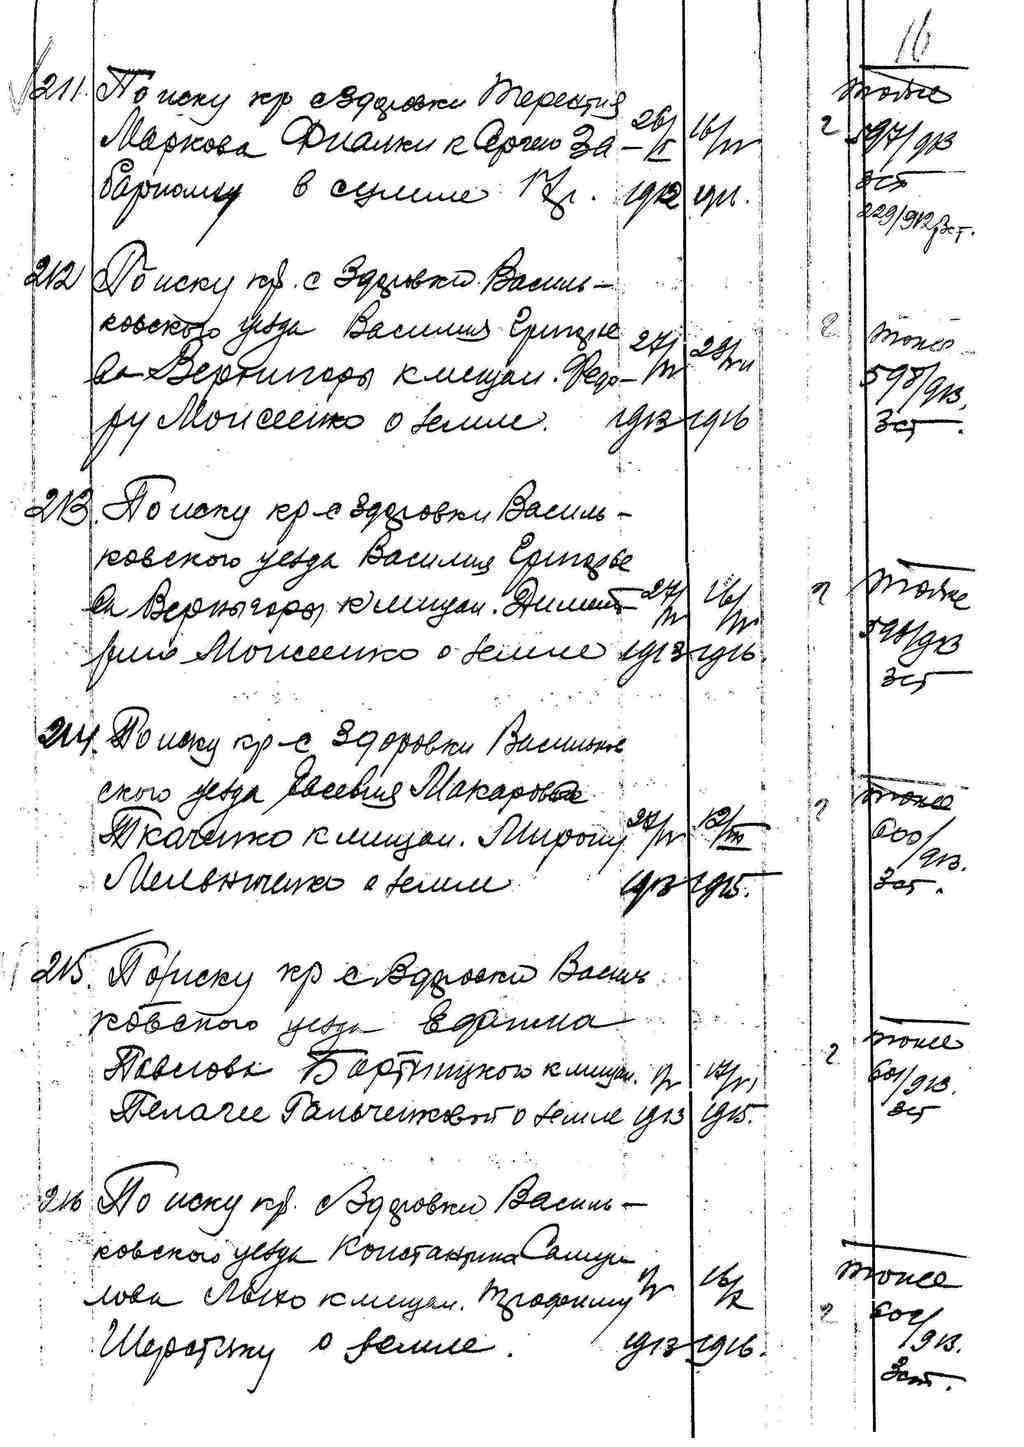 16
211. По иску кр. с Здоровки Терентия
Маркова Фиалки к Сергею За
в сумме 17 р.
26/ 16/
1912
тоже
2
597/913
3 ст
229/912 3 ст.
212 По иску кр. с Здоровки Василь-
ковского уезда Василия Григорье
ва Вернигоры к мещан. Федо-
ру Моисеенко о земле.
27/IV 29/
1913 1916
2
тоже
598/913.
3 ст.
213. По иску кр с Здоровки Василь-
ковского уезда Василия Григорье
ва Вернигоры к мещан. Димит-
рию Моисеенко о земле
27/IV 16/
1913 1916.
2
тоже
/913
3 ст
214. По иску кр с Здоровки Васильков
ского уезда Евсевия Макарова
Ткаченко к мещан. Мирону
Мельниченко о земле
27/IV 12/
1913 1915.
2
тоже
600/913.
3 ст.
215. По иску кр с Здоровки Василь
ковского уезда
Павлова к мещан.
Пелагее Гальченковой о земле
1913 1915.
2
тоже
601/913.
3 ст
216 По иску кр. с Здоровки Василь-
ковского уезда Константина Самуи
лова к мещан. Трофиму
о земле.
16/
1913 1916.
2
тоже
602/913.
3 ст.